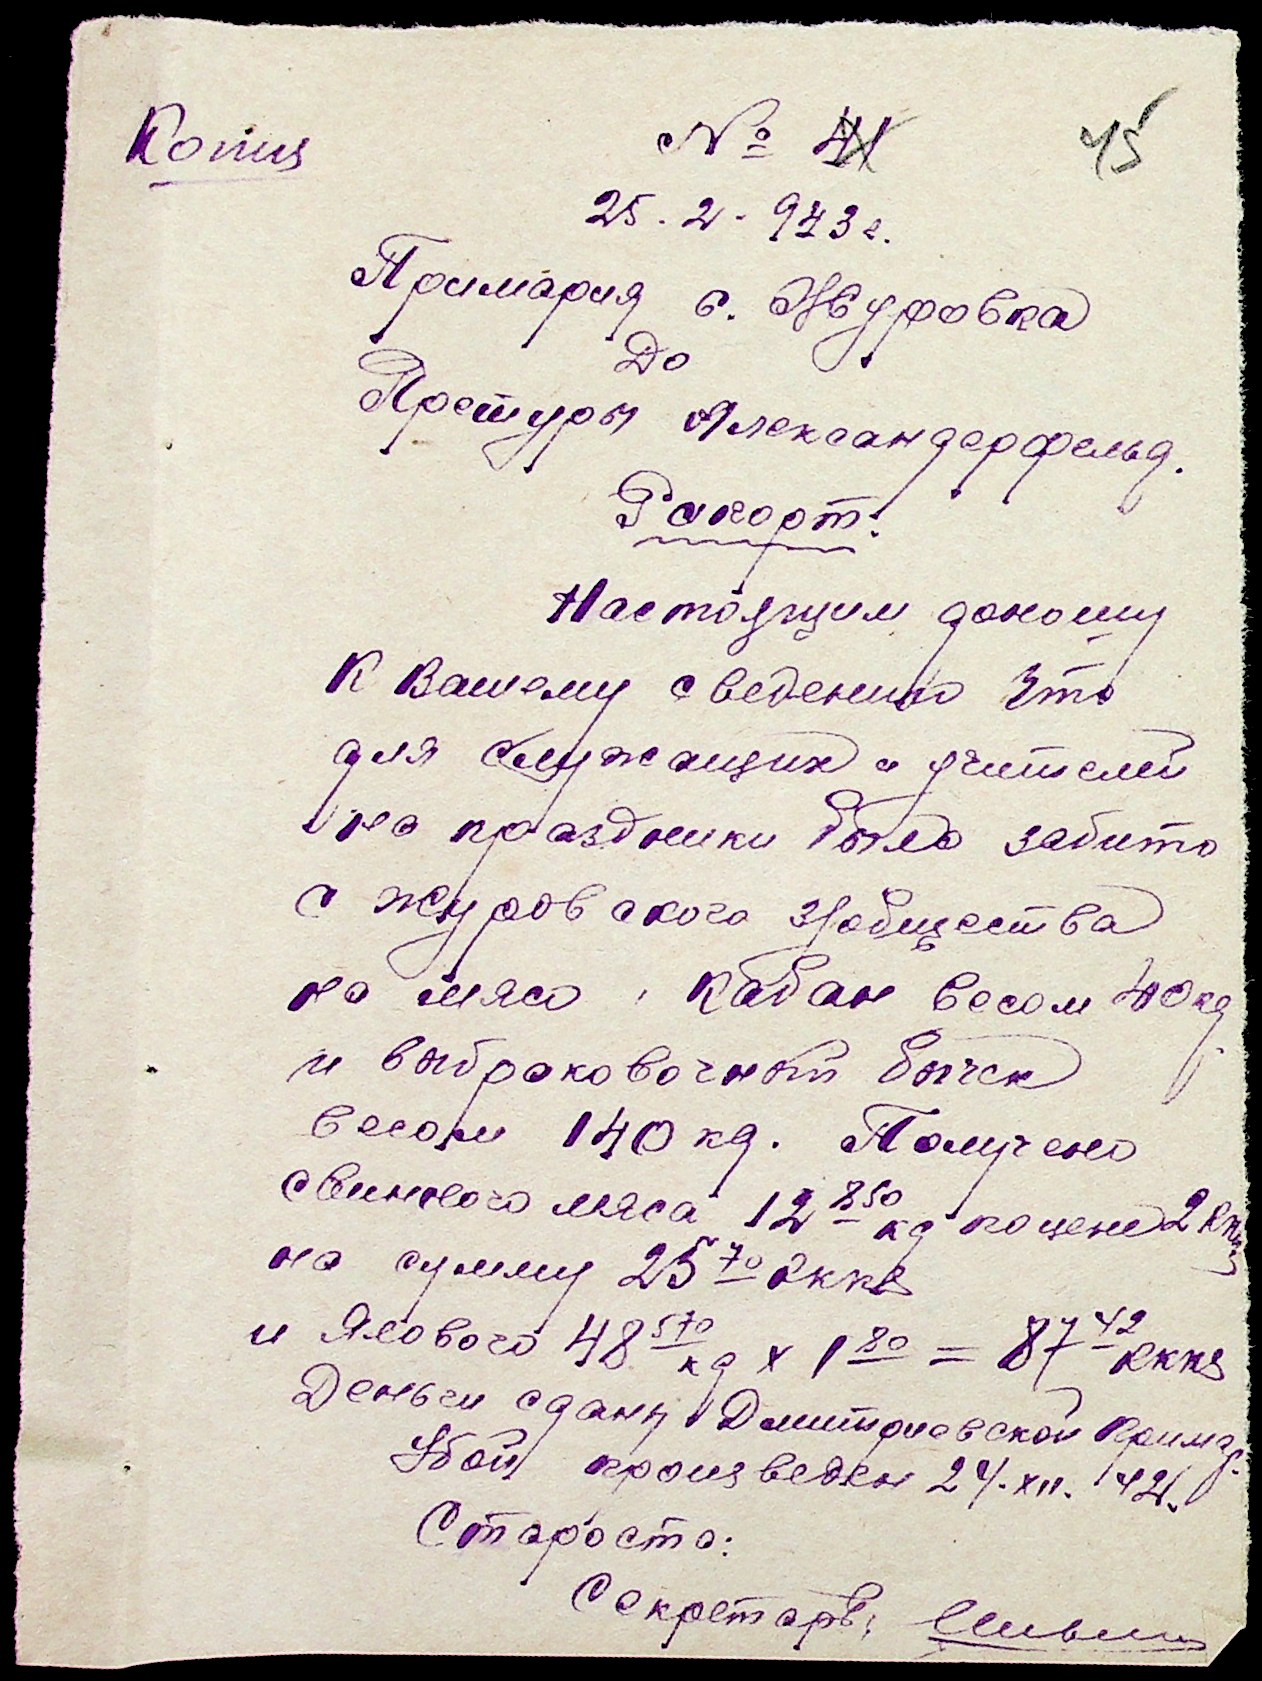 Копия
№ 41
45
25.2.943 г.
Примария с. Журовка
До
Претуры Александерфельд.
Рапорт.
Настоящим доношу
к Вашему сведению что
для служащих и учителей
на праздники было забито
с журовского з/общества
на мясо, кабан весом 40 кд
и выбраковочный бычек
весом 140 кд. Получено
свинного мяса 12 850 кд по цене 2 RKKS
на сумму 25 70 RKKS
и Ялового 48 570 кд х 1 80 = 87 42 RKKS
Деньги сданы Дмитриевской Примар.
Убой произведен 24.XII.42.
Староста:
Секретарь: